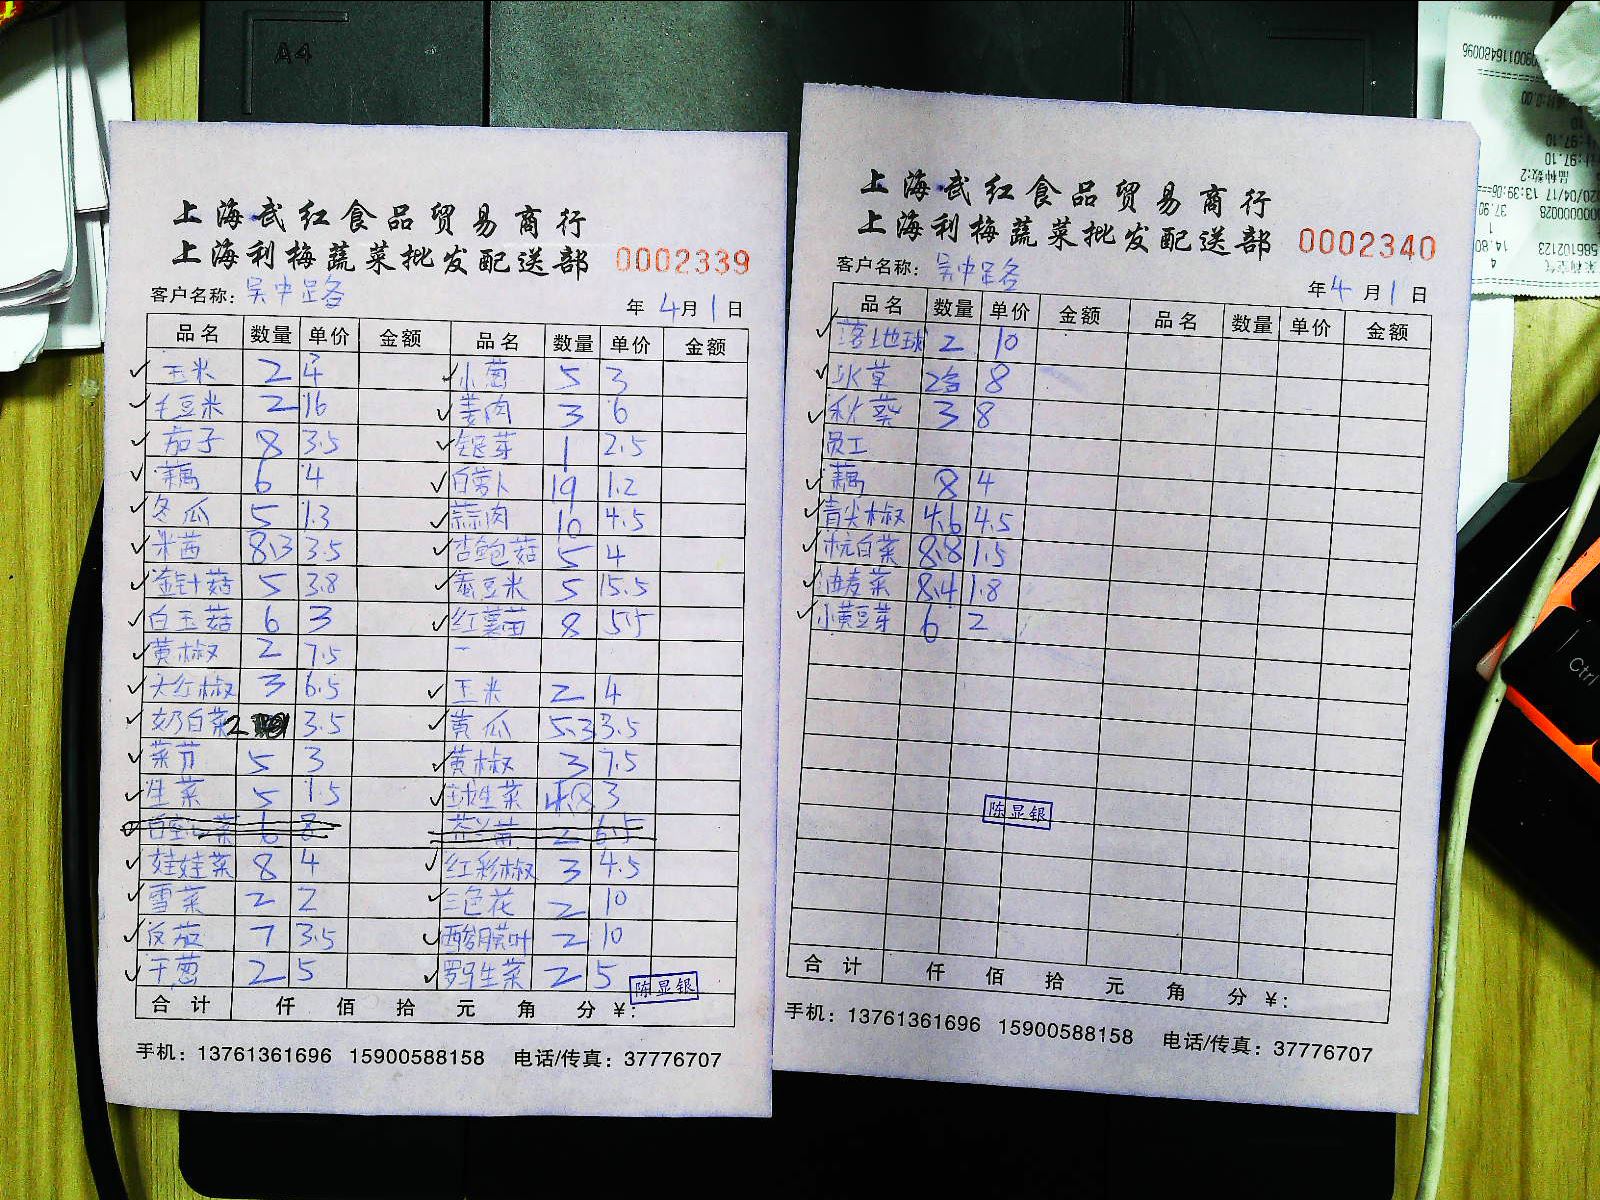 A4
上海武红食品贸易商行
上海利梅蔬菜批发配送部 0002339
客户名称: 吴中路
年 4月 1日
品名 数量 单价 金额 品名 数量 单价 金额
玉米 2 4 小葱 5 3
毛豆米 2 16 姜肉 3 6
茄子 8 3.5 银芽 1 2.5
藕 6 4 白萝卜 19 1.2
冬瓜 5 1.3 蒜肉 10 4.5
米茜 8.3 3.5 杏鲍菇 5 4
金针菇 5 3.8 蚕豆米 5 15.5
白玉菇 6 3 红薯苗 8 5.5
黄椒 2 7.5
大红椒 3 6.5 玉米 2 4
奶白菜 2 3.5 黄瓜 5.3 3.5
菜芥 5 3 黄椒 3 7.5
生菜 5 1.5 球生菜 4.8 3
娃娃菜 8 4 红彩椒 3 4.5
雪菜 2 2 三色花 2 10
反茄 7 3.5 酸膜叶 2 10
干葱 2 5 罗马生菜 2 5
陈显银
合计 仟 佰 拾 元 角 分 ¥:
手机: 13761361696 15900588158 电话/传真: 37776707
上海武红食品贸易商行
上海利梅蔬菜批发配送部 0002340
客户名称: 吴中路
年 4 月 1 日
品名 数量 单价 金额 品名 数量 单价 金额
落地球 2 10
冰草 2 8
秋葵 3 8
员工
藕 8 4
青尖椒 4.6 4.5
杭白菜 8.8 1.5
油麦菜 8.4 1.8
小黄豆芽 6 2
陈显银
合计 仟 佰 拾 元 角 分 ¥:
手机: 13761361696 15900588158 电话/传真: 37776707
Ctrl